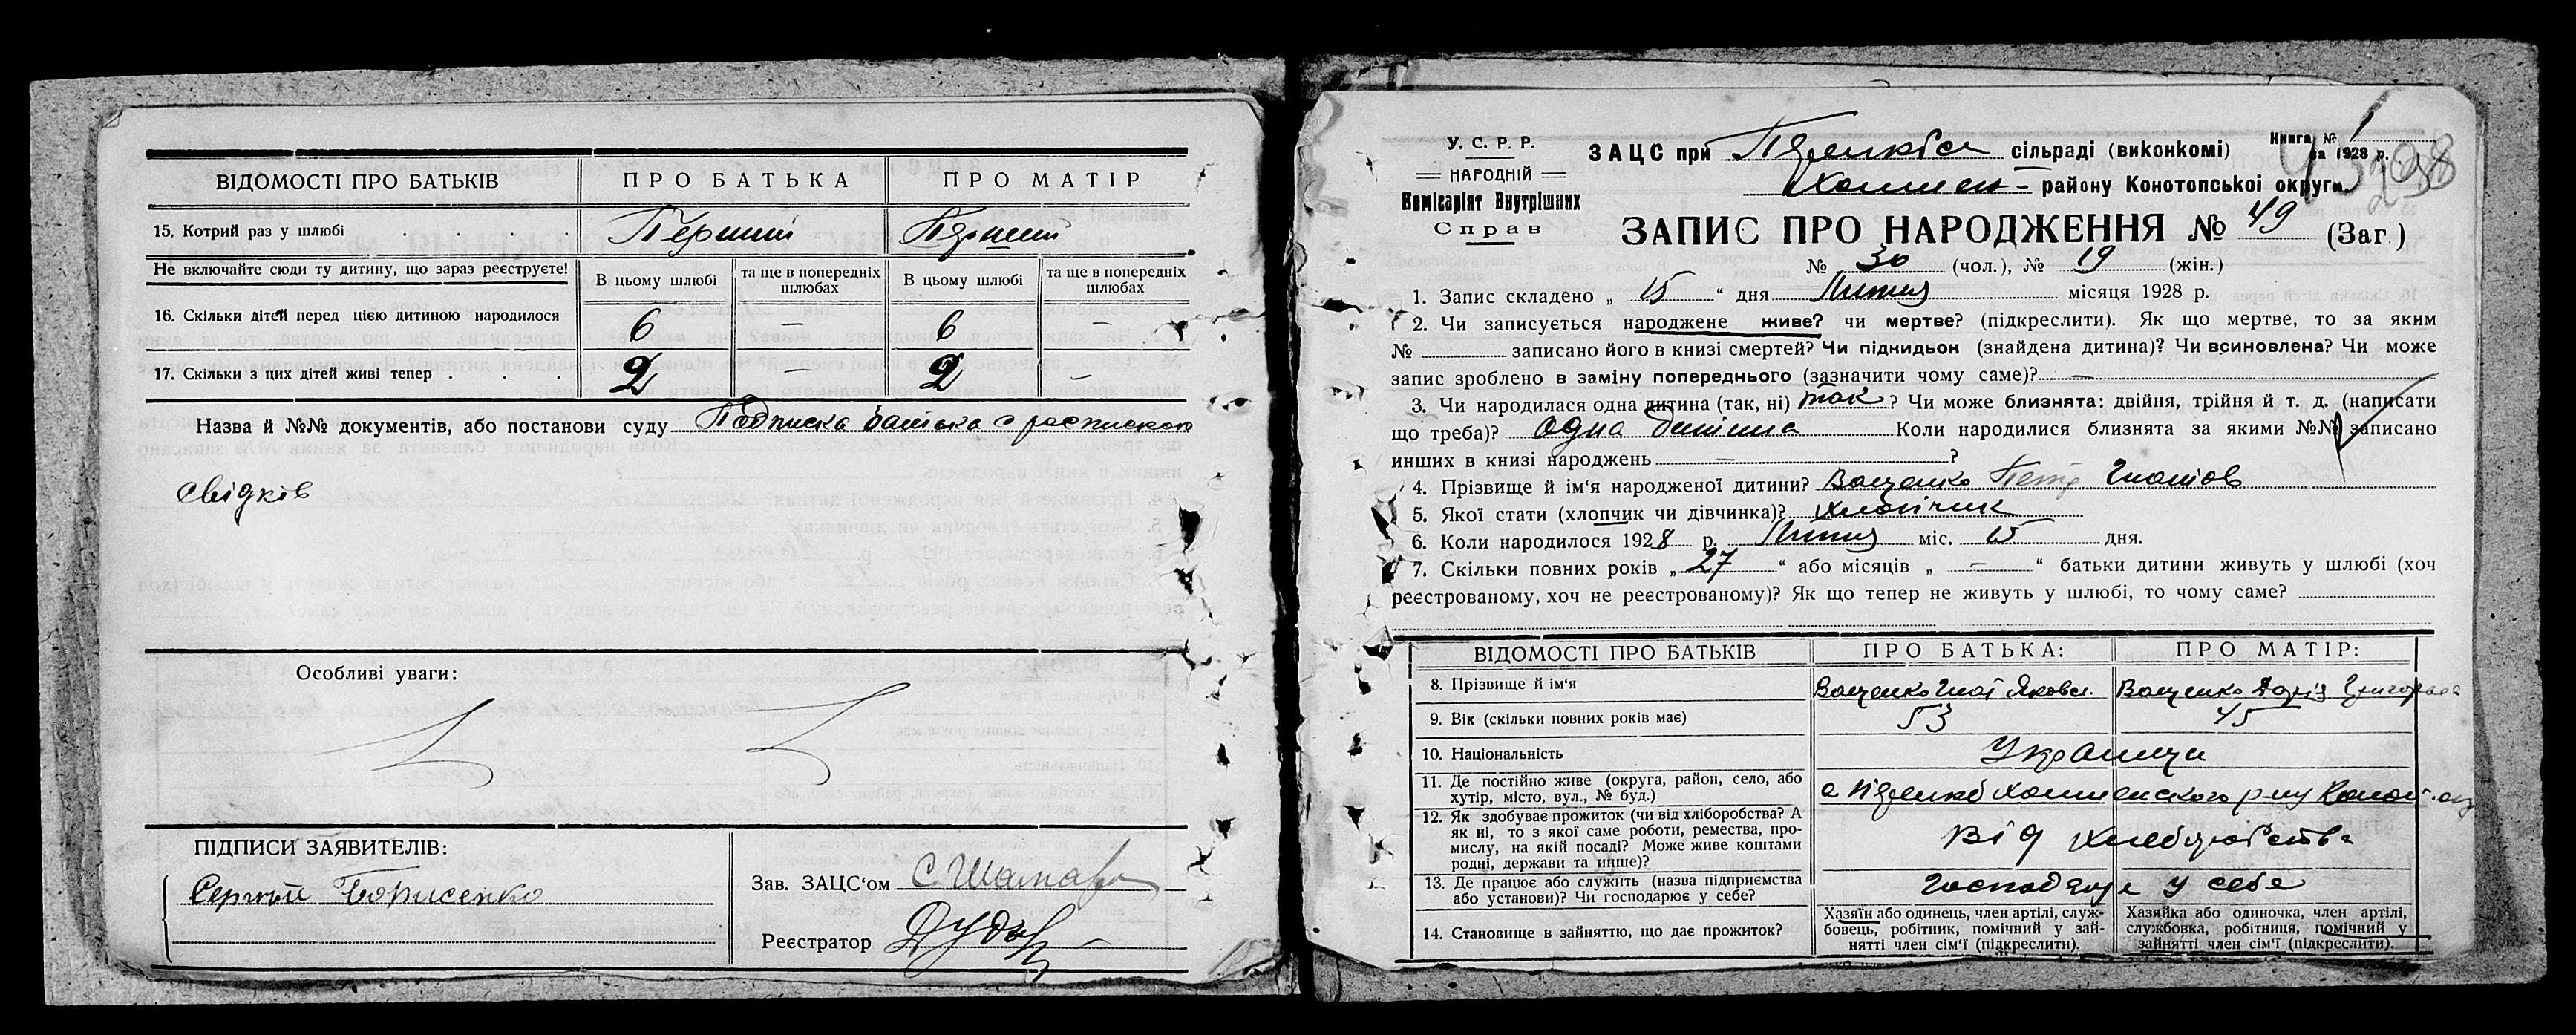 ВІДОМОСТІ ПРО БАТЬКІВ
ПРО БАТЬКА
ПРО МАТІР
15. Котрий раз у шлюбі
Перший
Перший
Не включайте сюди ту дитину, що зараз реєструєте!
В цьому шлюбі
та ще в попередніх шлюбах
В цьому шлюбі
та ще в попередніх шлюбах
16. Скільки дітей перед цією дитиною народилося
6 — 6 —
17. Скільки з цих дітей живі тепер . . .
2 — 2 —
Назва й №№ документів, або постанови суду Подписка батька с роспискою
свідків
Особливі уваги:
ПІДПИСИ ЗАЯВИТЕЛІВ:
Сергій Борисенко
Зав. ЗАЦС'ом
Реєстратор
У. С. Р. Р.
НАРОДНІЙ
Комісаріят Внутрішних
Справ
ЗАЦС при сільраді (виконкомі)
району Конотопської округи.
Книга № 1
за 1928 р.
ЗАПИС ПРО НАРОДЖЕННЯ № 49 (Заг.)
№ 30 (чол.), № 19 (жін.)
1. Запис складено „ 15 “ дня Липня місяця 1928 р.
2. Чи записується народжене живе? чи мертве? (підкреслити). Як що мертве, то за яким
№ записано його в книзі смертей? Чи підкидьок (знайдена дитина)? Чи всиновлена? Чи може
запис зроблено в заміну попереднього (зазначити чому саме)? —
3. Чи народилася одна дитина (так, ні) так ? Чи може близнята: двійня, трійня й т. д. (написати
що треба)? одна дитина Коли народилися близнята за якими №№ записано
инших в книзі народжень — ?
4. Прізвище й ім'я народженої дитини? Ващенко Петр Гнатов
5. Якої стати (хлопчик чи дівчинка)? хлопчик
6. Коли народилося 1928 р. Липня міс. 15 дня.
7. Скільки повних років „ 27 “ або місяців „ — “ батьки дитини живуть у шлюбі (хоч
реєстрованому, хоч не реєстрованому)? Як що тепер не живуть у шлюбі, то чому саме?
ВІДОМОСТІ ПРО БАТЬКІВ
ПРО БАТЬКА:
ПРО МАТІР:
8. Прізвище й ім'я
Ващенко Гнат Яковл.
Ващенко Дарія Григорьевна
9. Вік (скільки повних років має)
53
45
10. Національність
Украинци
11. Де постійно живе (округа, район, село, або
хутір, місто, вул., № буд.)
12. Як здобуває прожиток (чи від хліборобства? А
як ні, то з якої саме роботи, ремества, про-
мислу, на якій посаді? Може живе коштами
родні, держави та инше)?
Від хлеборобства
13. Де працює або служить (назва підприємства
або установи)? Чи господарює у себе?
господарює у себе
14. Становище в зайняттю, що дає прожиток?
Хазяїн або одинець, член артілі, служ-
бовець, робітник, помічний у зай-
нятті член сім'ї (підкреслити).
Хазяйка або одиночка, член артілі,
службовка, робітниця, помічний у
зайнятті член сім'ї (підкреслити).